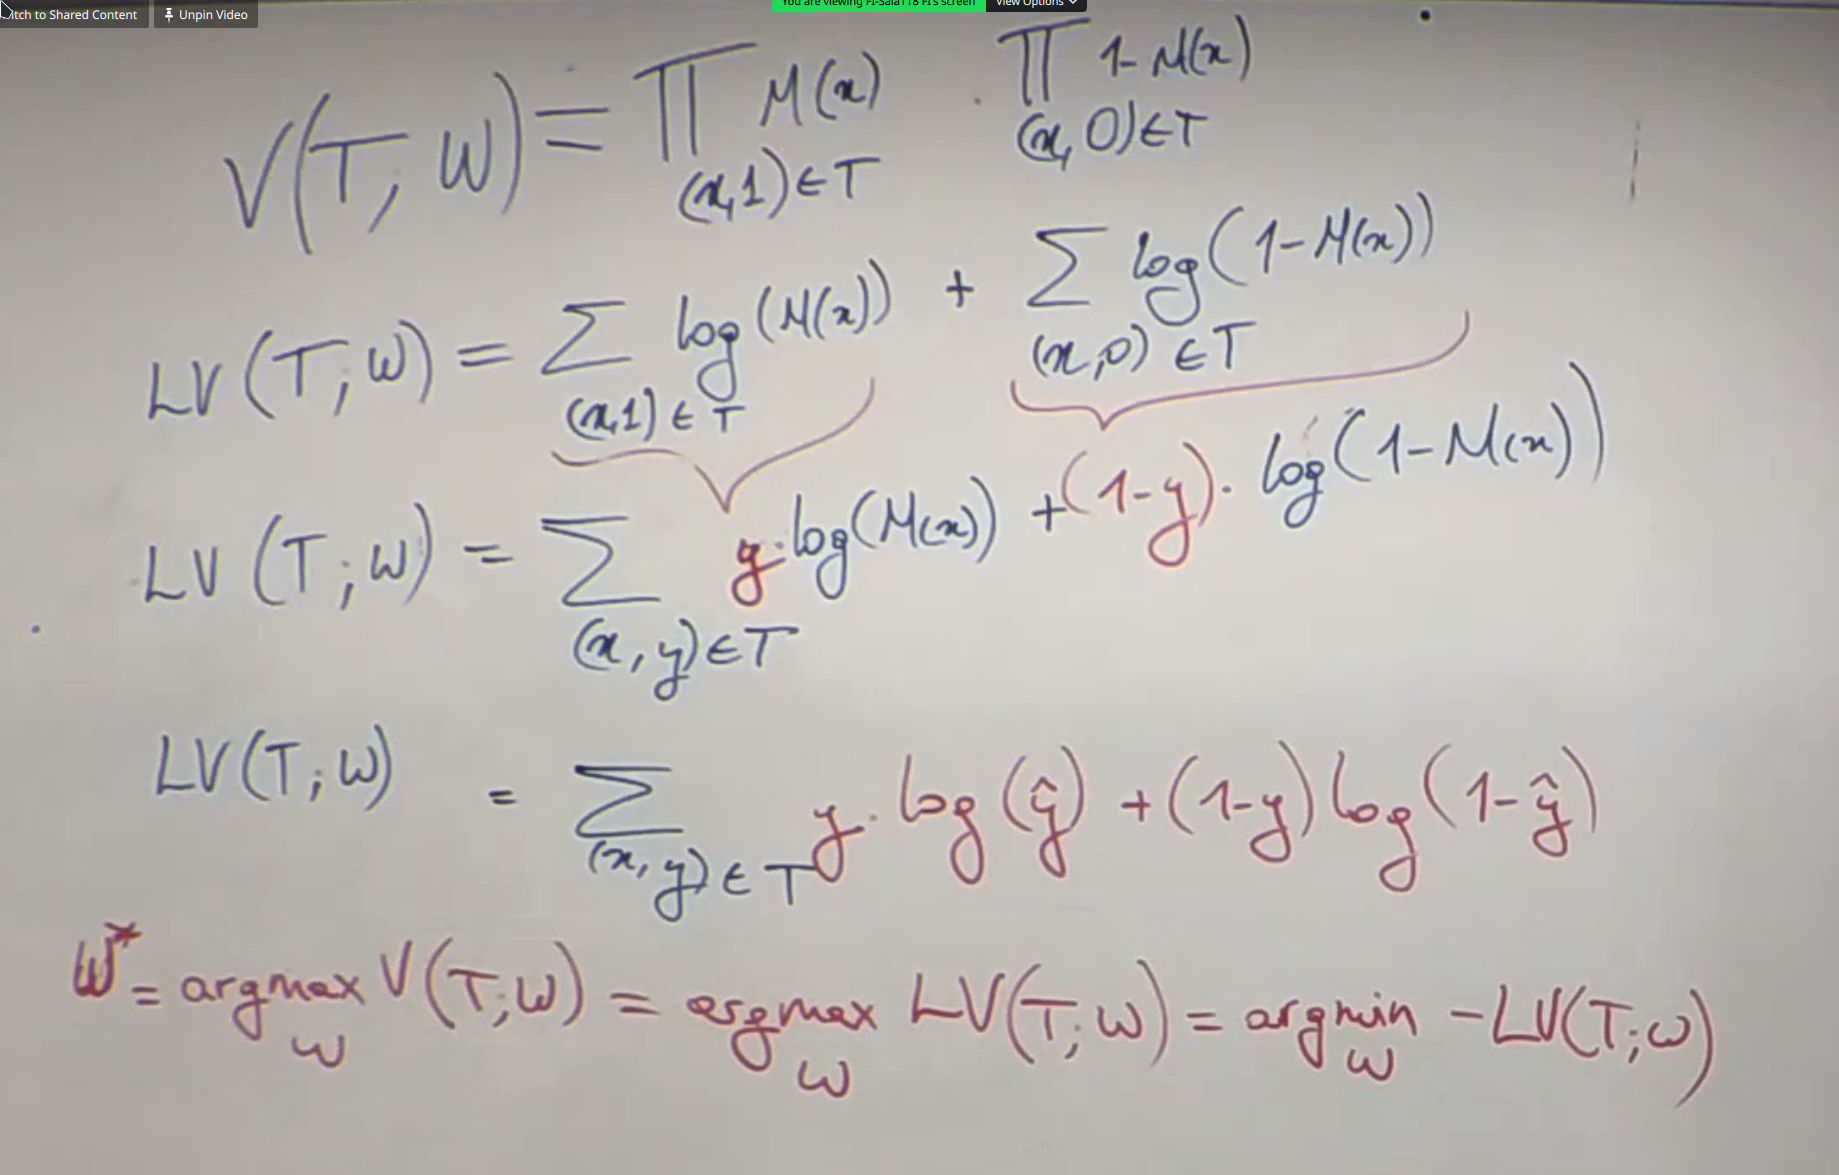 itch to Shared Content Unpin Video You are viewing FI-Sala118 FI's screen View Options
V(T; W) = ∏ M(x) · ∏ 1-M(x)
(x,1)∈T (x,0)∈T
LV(T; W) = ∑ log(M(x)) + ∑ log(1-M(x))
(x,1)∈T (x,0)∈T
LV(T; W) = ∑ y·log(M(x)) + (1-y)·log(1-M(x))
(x,y)∈T
LV(T; W) = ∑ y·log(ŷ) + (1-y)log(1-ŷ)
(x,y)∈T
W* = argmax V(T;W) = argmax LV(T;W) = argmin -LV(T;W)
W W W